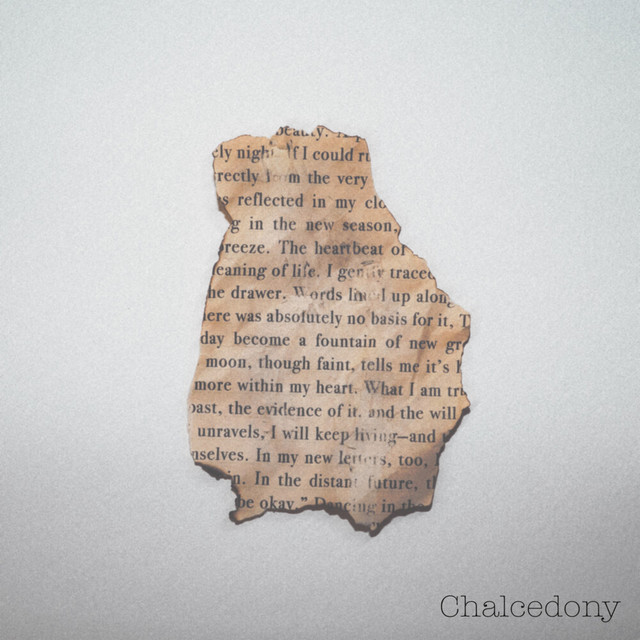 beauty.
ly night If I could ru
rectly from the very
s reflected in my clo
g in the new season,
breeze. The heartbeat of
eaning of life. I gently traced
he drawer. Words lined up along
ere was absolutely no basis for it, T
day become a fountain of new gr
moon, though faint, tells me it's
more within my heart. What I am tr
past, the evidence of it, and the will
unravels, I will keep living—and
nselves. In my new letters, too,
n. In the distant future, th
be okay." Dancing in the
Chalcedony